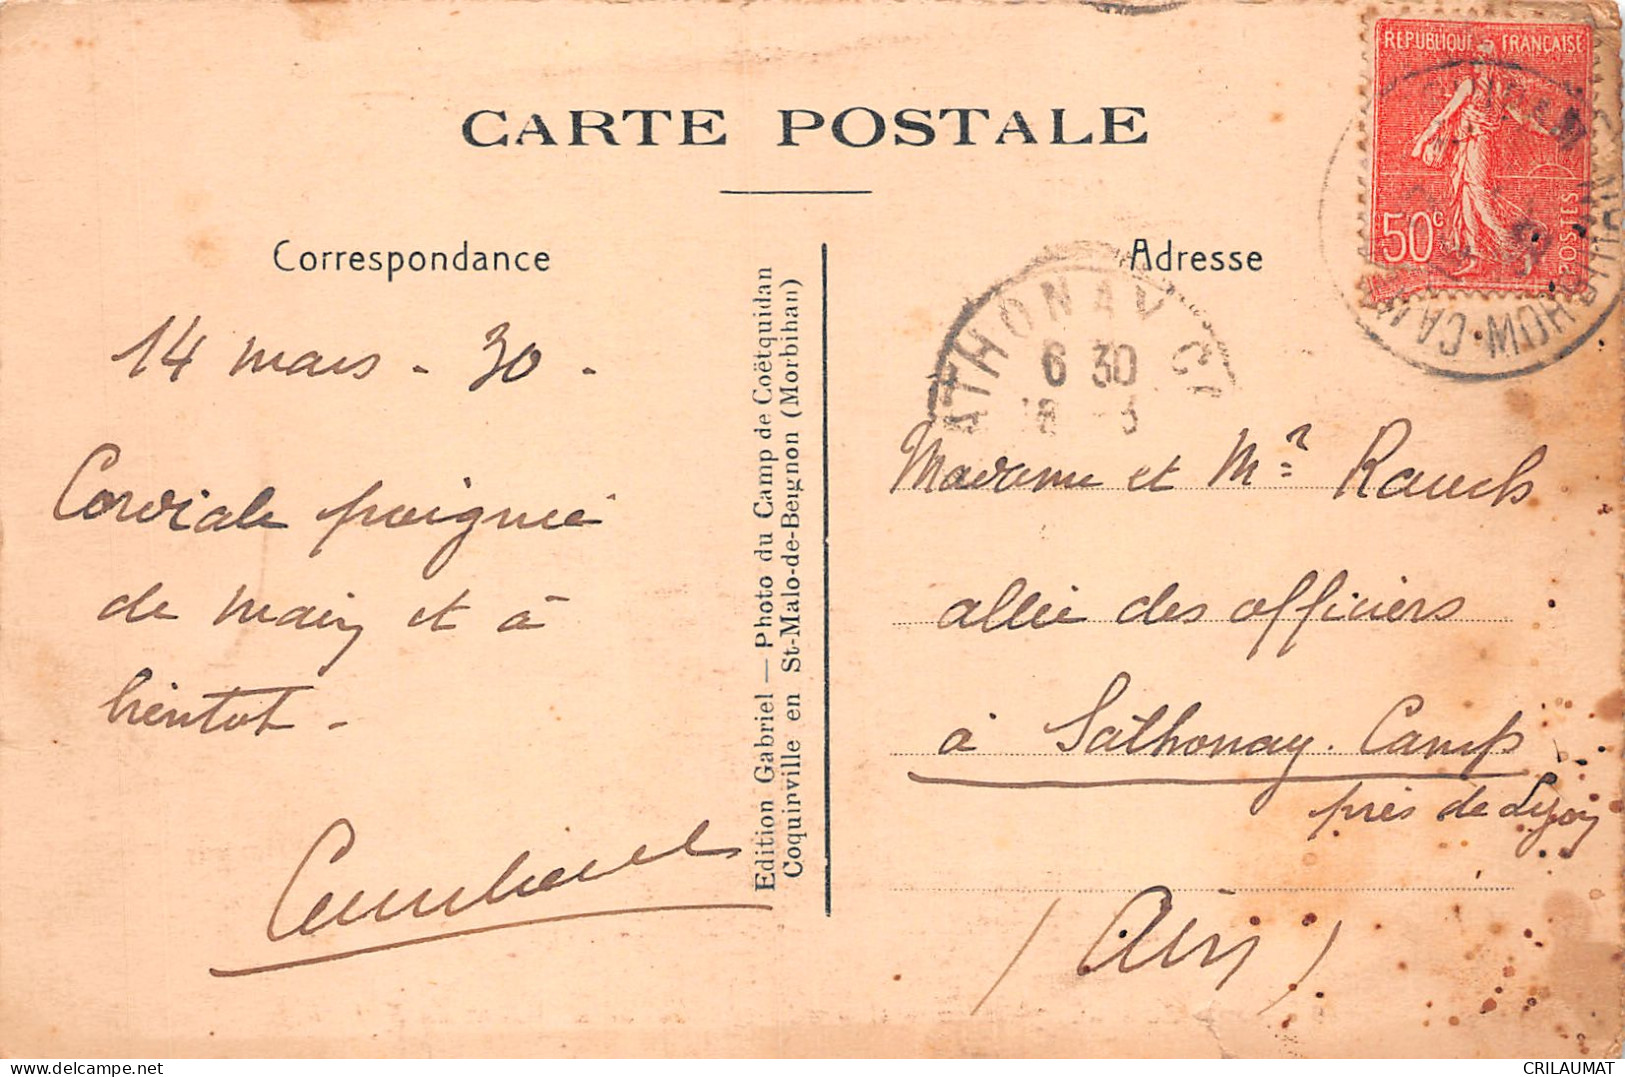 CARTE POSTALE
Correspondance
14 mars - 30 -
Cordiale poignée
de main et à
bientot -
Edition Gabriel — Photo du Camp de Coëtquidan
Coquinville en St-Malo-de-Beignon (Morbihan)
Adresse
REPUBLIQUE FRANÇAISE
50c
POSTES
ATHONAY
6 30
18 - 3
Madame et Mr Rauch
allée des officiers
à Sathonay. Camp
près de Lyon
(Ain)
delcampe.net
CRILAUMAT